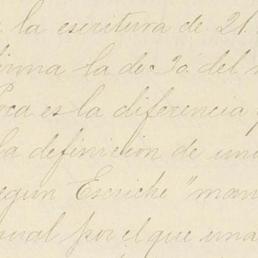 la escritura de 21
firma la de 30 del
oca es la diferencia
la definicion de un
egun Escriche "man
sual por el que una